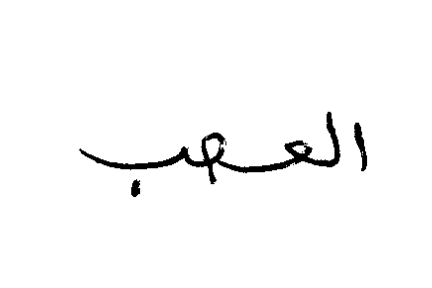 العهب